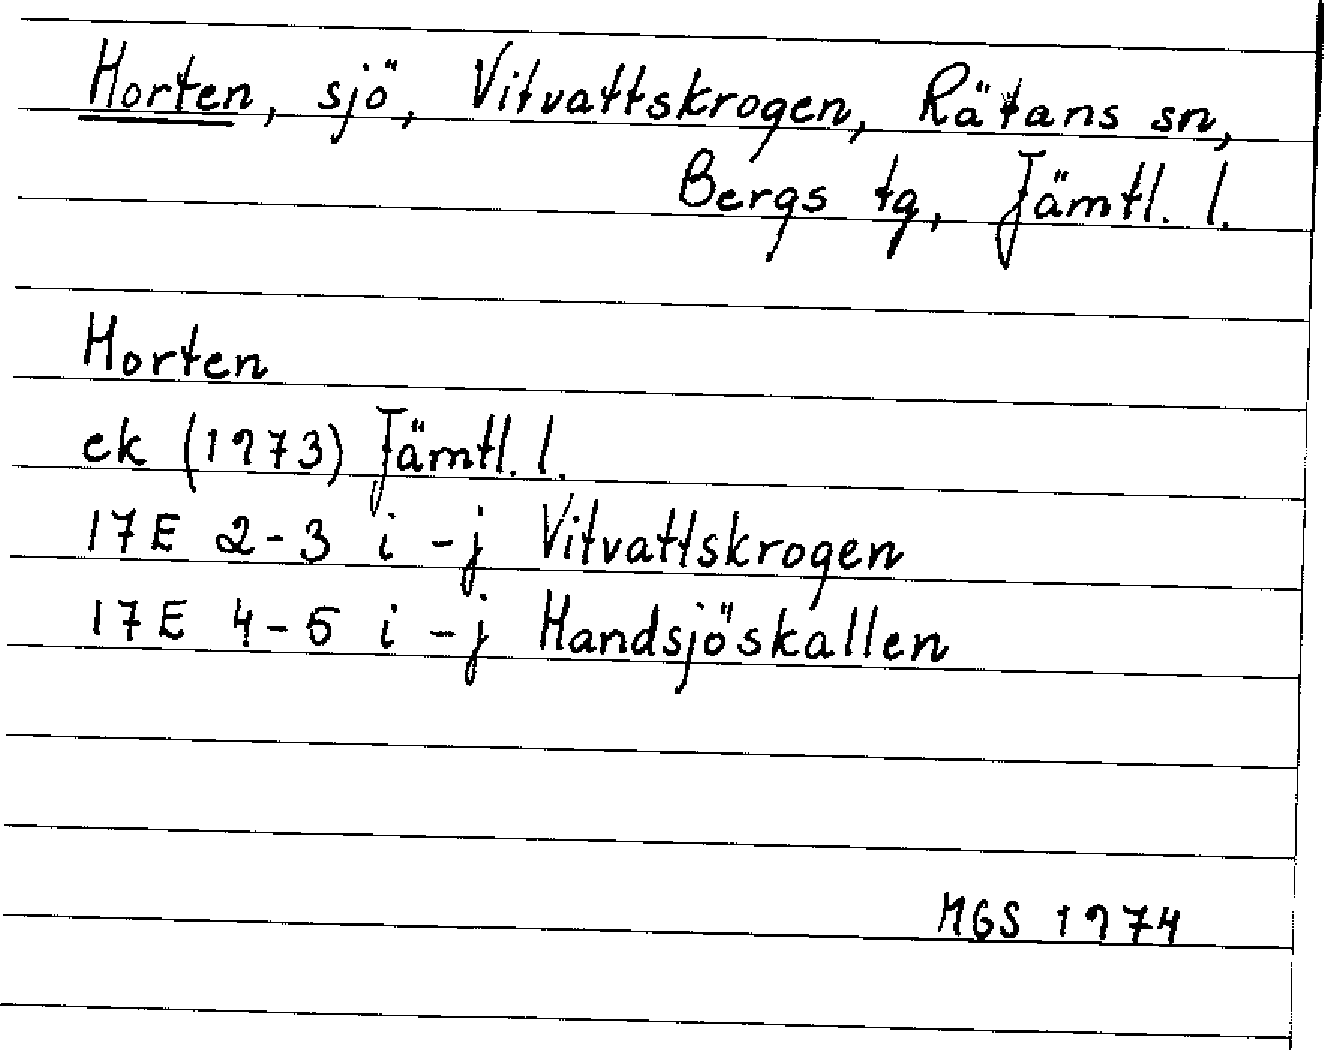 Horten, sjö, Vitvattskrogen, Rätans sn,
Bergs tg, Jämtl. l.
Horten
ek (1973) Jämtl. l.
17E 2-3 i-j Vitvattskrogen
17E 4-5 i-j Handsjöskallen
MGS 1974